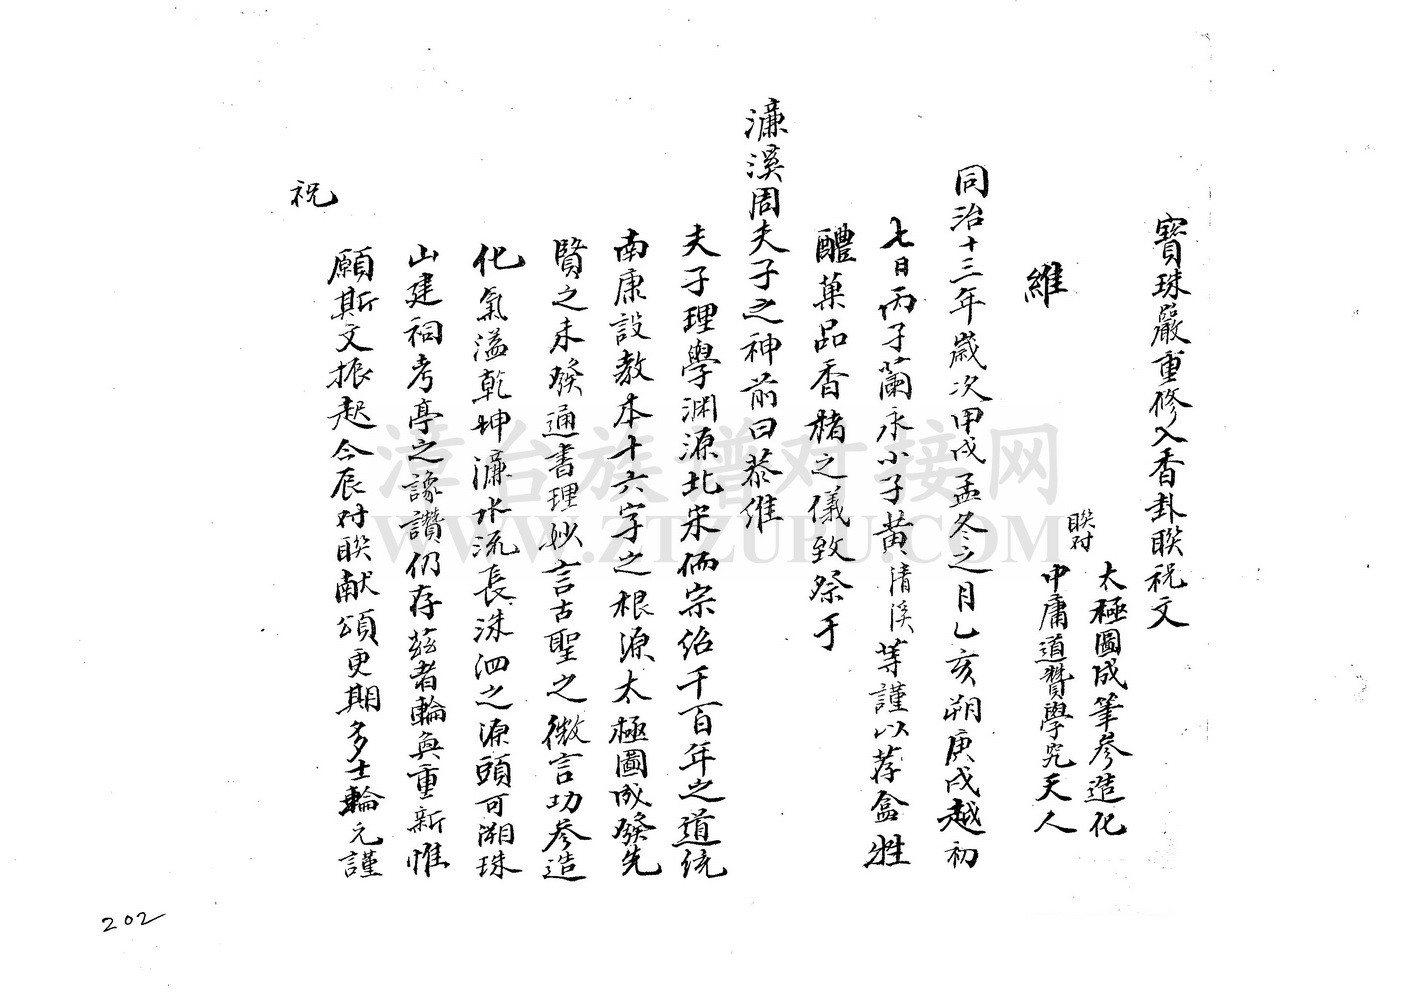 寶珠嚴重修入香卦聮祝文
聮对
太極圖成筆參造化
中庸道贊學究天人
維
同治十三年歲次甲戌孟冬之月乙亥朔庚戌越初
七日丙子蘭永小子黃清溪等謹以荐盒牲
醴菓品香楮之儀致祭于
濂溪周夫子之神前曰恭維
夫子理學渊源北宋儒宗绍千百年之道統
南康設教本十六字之根源太極圖成發先
賢之未發通書理妙言古聖之微言功參造
化氣溢乾坤濂水流長洙泗之源頭可溯珠
山建祠考亭之讚仍存兹者輪奐重新惟
願斯文振起今辰对聮献頌更期多士輪元謹
祝
202
漳台族谱对接网
WWW.ZTZUPU.COM